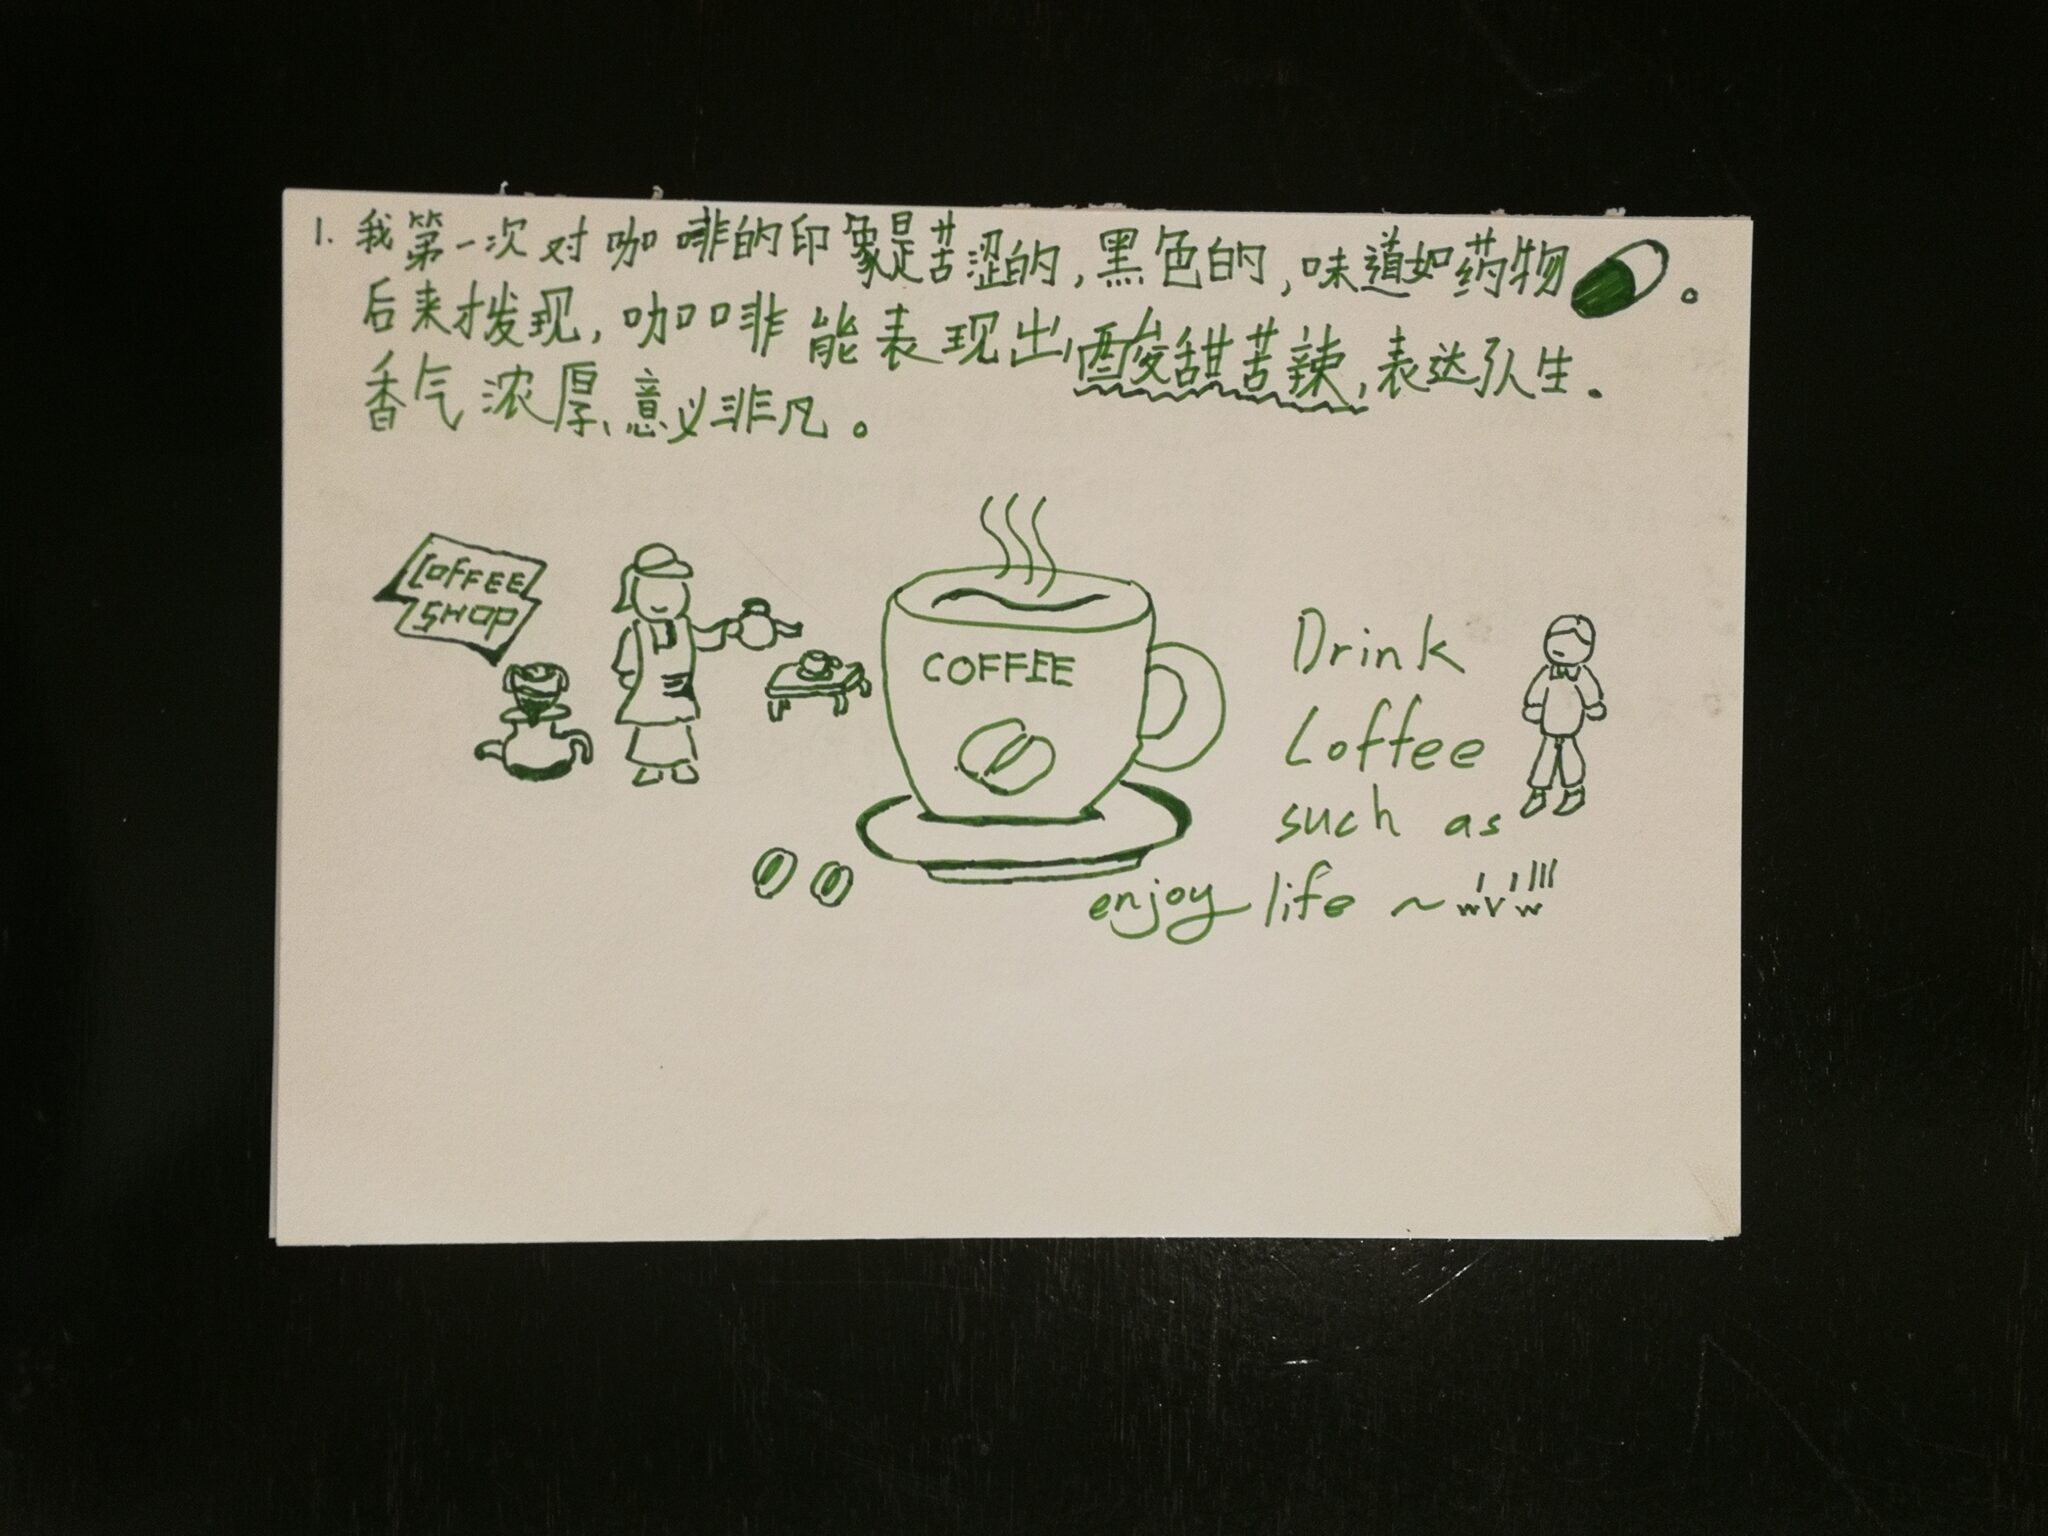 1. 我第一次对咖啡的印象是苦涩的,黑色的,味道如药物。
后来才发现,咖啡能表现出酸甜苦辣,表达人生.
香气浓厚、意义非凡。
COFFEE
SHOP
COFFEE
Drink
Coffee
such as
enjoy life ~